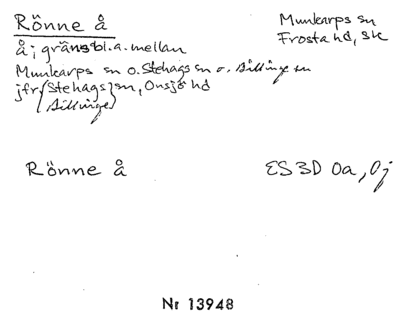 Rönne å
Munkarps sn
Frosta hd, Sk
å; gräns bl.a. mellan
Munkarps sn o. Stehags sn o. Billinge sn
jfr (Stehags) sn, Onsjö hd
(Billinge)
Rönne å
ES 3D 0a, 0j
Nr 13948